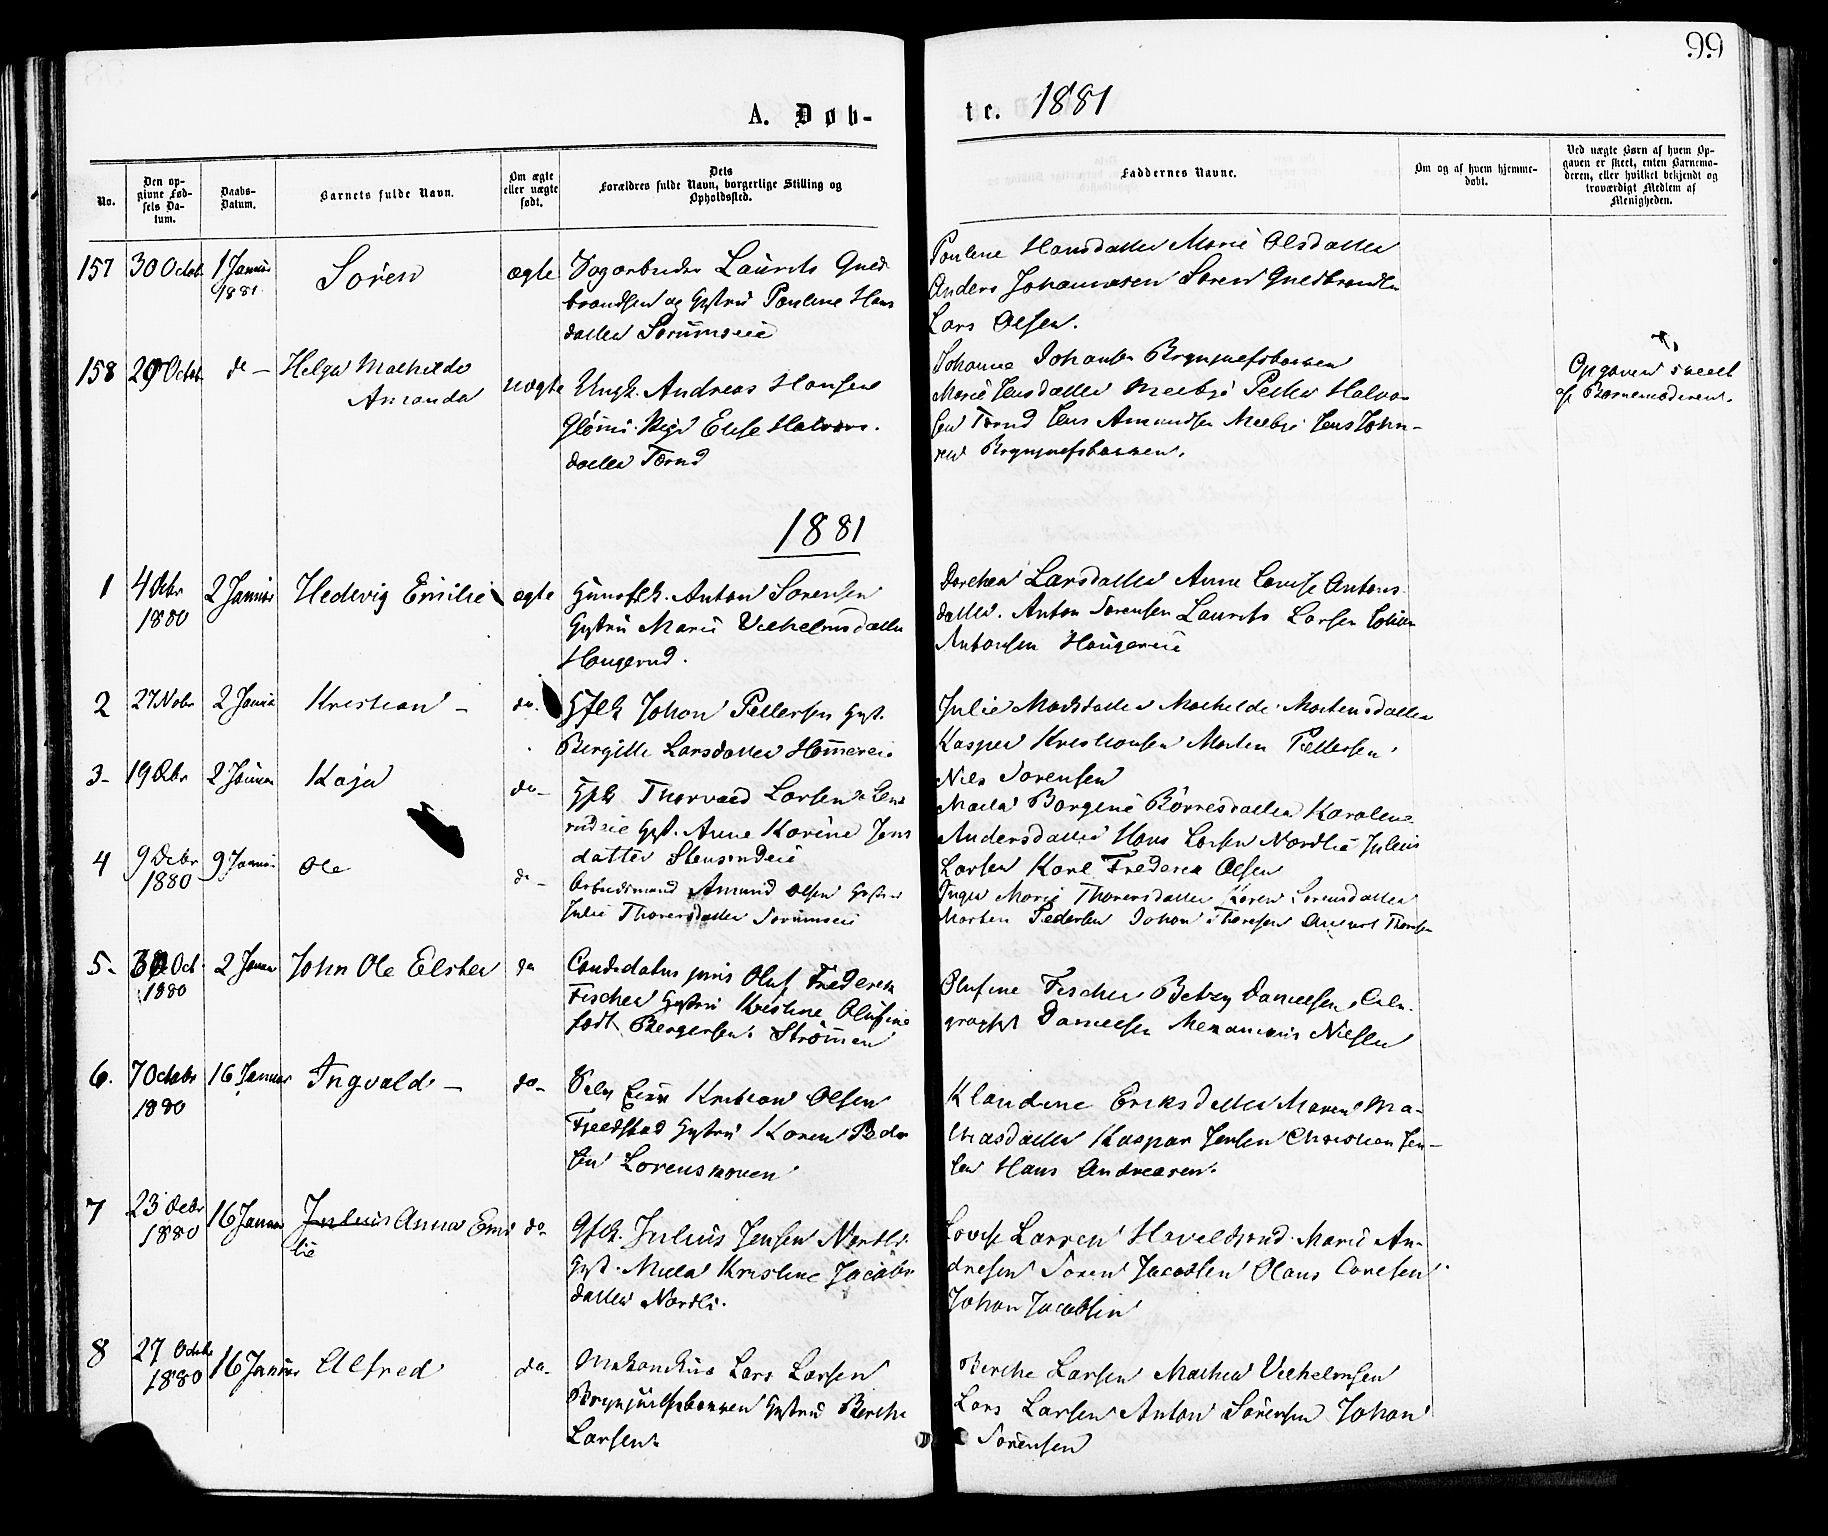 99
A. Døb-
te. 1881
No.
Den op-
givne Fød-
sels Da-
tum.
Daabs-
Datum.
Barnets fulde Navn.
Om ægte
eller uægte
født.
Dets
Forældres fulde Navn, borgerlige Stilling og
Opholdssted.
Faddernes Navne.
Om og af hvem hjemme-
døbt.
Ved uægte Børn af hvem Op-
gaven er skeet, enten Barnemo-
deren, eller hvilket bekjendt og
troværdigt Medlem af
Menigheden.
157 30 Octob. 1 Januar
1881
Sören
ægte
Laurits Gud-
brandsen og Hustru Pauline Hans
datter Sörumseie
Pauline Hansdatter Marie Olsdatter
Anders Johannesen Soren Gudbrandsen
Lars Olsen.
158 29 Octob. do —
Helga Mathilde
Amanda
uægte
Ungk. Andreas Hansen
Pige Elise Halvors-
datter Tærud
Johanne Johansen
Marie Jensdatter Melbye Peder Halvor-
sen Tærud Jens Amundsen Melbye Jens John-
sen
Opgaven skeet
af Barnemoderen.
1881
1 4 Octbr
1880
2 Januar
Hedevig Emilie
ægte
Husflk. Anton Sorensen
Hustru Marie Vilhelmsdatter
Haugerud.
Dorthea Larsdatter Anne Lovise Antons-
datter. Anton Sorensen Laurits Larsen Johan
Antonsen Haugereie
2 27 Nobr 2 Januar
Kristian —
do.
Hflk Johan Pettersen Hust.
Birgitte Larsdatter
Julie Madsdatter Mathilde Mortensdatter
Kasper Kristiansen Morten Pettersen
Nils Sorensen
3- 19 2 Januar
Kaja
do-
Hflk Thorvald Larsen
Hust. Anne Karine Jens
datter Stensrudeie
Borgine Börresdatter Karoline
Andersdatter Hans Larsen Nordlie Julius
Larsen Karl Frederik Olsen
4 9 Decbr
1880
9 Januar
Ole
do-
Arbeidsmand Amund Olsen Hustru
Julie Thoresdatter Sörumseie
Inga Marie Thoresdatter Karen Lorensdatter
Morten Pedersen Johan Thoresen
5- Oct.
1880
2 Januar
John Ole Elster
do
Candidatus juris Oluf Frederik
Fischer Hustru Kristine Olufine
født Bergersen. Strömmen
Olufine Fischer Betzy Danielsen
Danielsen Nielsen
6. 7 Octobr
1880
16 Januar
Ingvald —
do-
Selv Eier Kristian Olsen
Fjeldstad Hustru Karen Peder
sen Lorenskoven
Klaudine Eriksdatter Maren Ma-
thiasdatter Kaspar Jensen Christian Jen-
sen Hans Andreasen.
7 23 Decbr
1880
16 Januar
Julius Anna Emi
lie
do-
Gflk. Julius Jensen Nordli
Hust. Kristine Jacobs
datter Nordli.
Lovise Larsen Marie An-
dresen Soren Jacobsen Olaus
Johan Jacobsen
8 27 Octobr
1880
16 Januar
Alfred
do-
Mekanikus Lars Larsen
Hustru Berthe
Larsen.
Berthe Larsen Mathea Vilhelmsen
Lars Larsen Anton Sörensen Johan
Sörensen